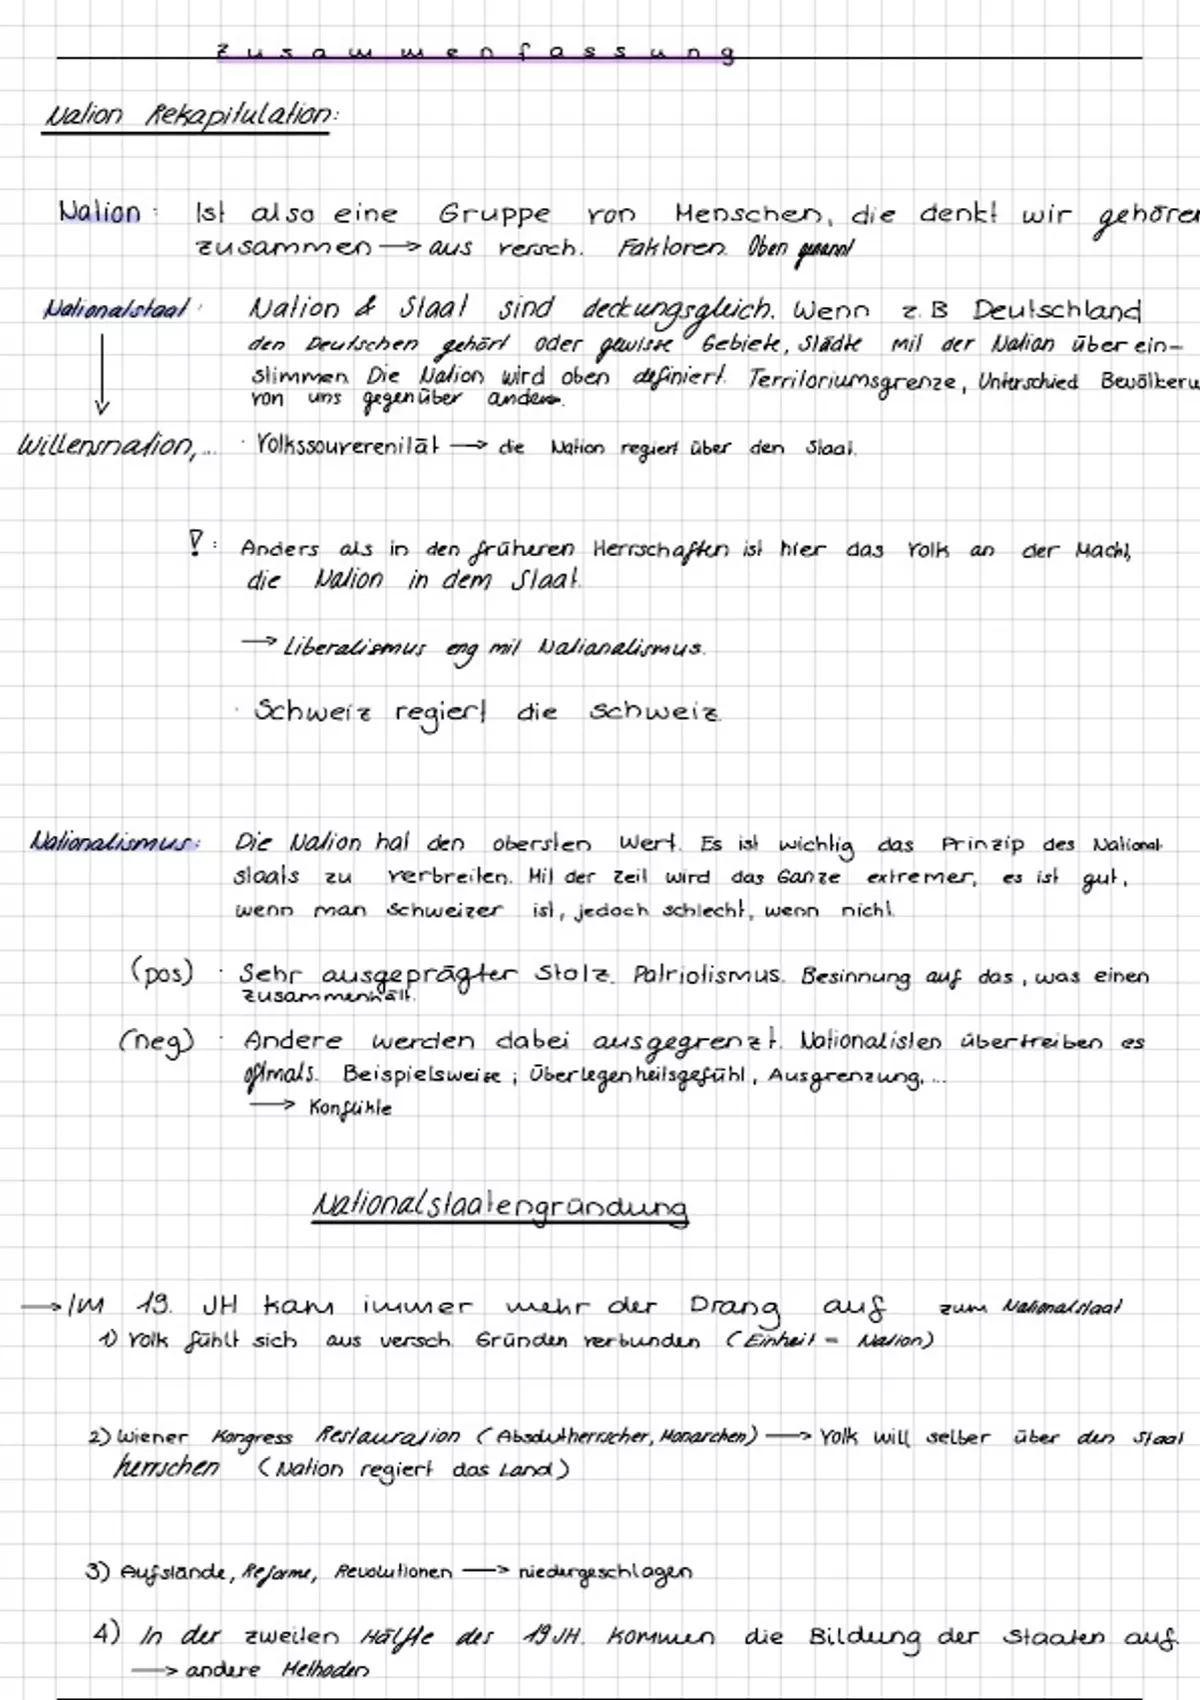 Zusammenfassung
Nation Rekapitulation:
Nation: Ist also eine Gruppe von Menschen, die denkt wir gehören
zusammen → aus versch. Faktoren. Oben genannt
Nationalstaat: Nation & Staat sind deckungsgleich. Wenn z.B Deutschland
den Deutschen gehört oder gewisse Gebiete, Städte mit der Nation überein-
stimmen. Die Nation wird oben definiert. Territoriumsgrenze, Unterschied Bevölkeru
von uns gegenüber andere.
Willensnation,... · Volkssouverenität → die Nation regiert über den Staat.
!: Anders als in den früheren Herrschaften ist hier das Volk an der Macht,
die Nation in dem Staat.
→ Liberalismus eng mit Nationalismus.
· Schweiz regiert die Schweiz.
Nationalismus: Die Nation hat den obersten Wert. Es ist wichtig das Prinzip des National-
staats zu verbreiten. Mit der Zeit wird das Ganze extremer, es ist gut,
wenn man Schweizer ist, jedoch schlecht, wenn nicht.
(pos) · Sehr ausgeprägter Stolz. Patriotismus. Besinnung auf das, was einen
zusammenhält.
(neg) · Andere werden dabei ausgegrenzt. Nationalisten übertreiben es
oftmals. Beispielsweise; Überlegenheitsgefühl, Ausgrenzung,...
→ Konflikte
Nationalstaatengründung
→ Im 19. JH kam immer mehr der Drang auf zum Nationalstaat
1) Volk fühlt sich aus versch. Gründen verbunden (Einheit = Nation)
2) Wiener Kongress Restauration (Absolutherrscher, Monarchen) → Volk will selber über den Staat
herrschen (Nation regiert das Land)
3) Aufstände, Reforme, Revolutionen → niedergeschlagen
4) In der zweiten Hälfte des 19JH. kommen die Bildung der Staaten auf.
→ andere Methoden